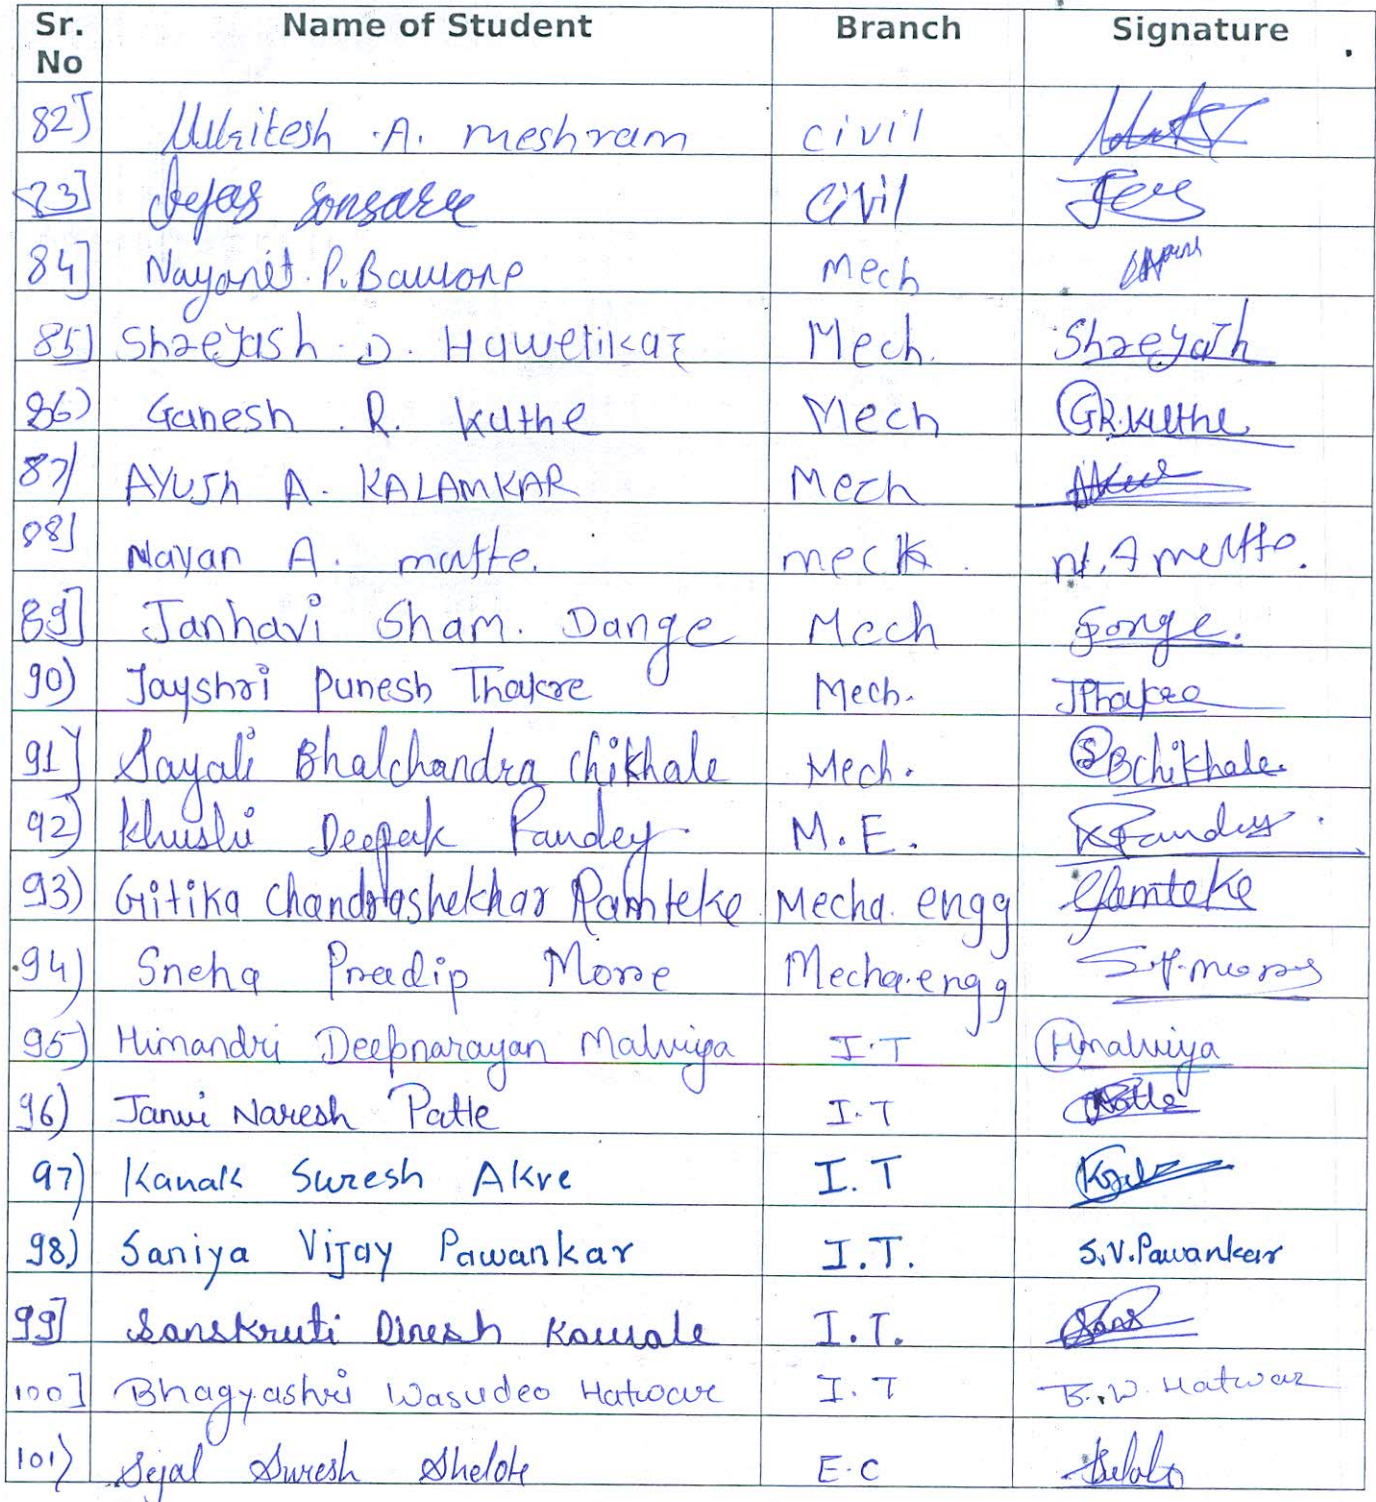 Sr. No Name of Student Branch Signature
82] A. meshram civil
83] Tejas Sonsare Civil Tejas
84] P. Mech
85] Shreyash D. Mech. Shreyash
86) Ganesh R. Kuthe Mech GR.Kuthe
87) AYUSh A. KALAMKAR Mech
88] Nayan A. matte. mech
89] Janhavi Sham. Dange Mech Dange.
90) Jayshri Punesh Thakre Mech. JPThakre
91] Sayali Bhalchandra Chikhale Mech. SBChikhale.
92) Khushi Deepak Pandey. M.E. KPandey
93) Gitika Chandrashekhar Ramteke Mecha. engg GRamteke
94) Sneha Pradip More Mecha.engg
95) Himandri Deepnarayan Malviya I.T HMalviya
96) Janvi Naresh Patle I.T Patle
97) Kanak Suresh Akre I.T
98) Saniya Vijay Pawankar I.T. S.V.Pawankar
99] Sanskruti Dinesh Kawale I.T.
100] Bhagyashri Wasudeo Hatwar I.T B.W. Hatwar
101) Sejal Suresh Shelote E.C